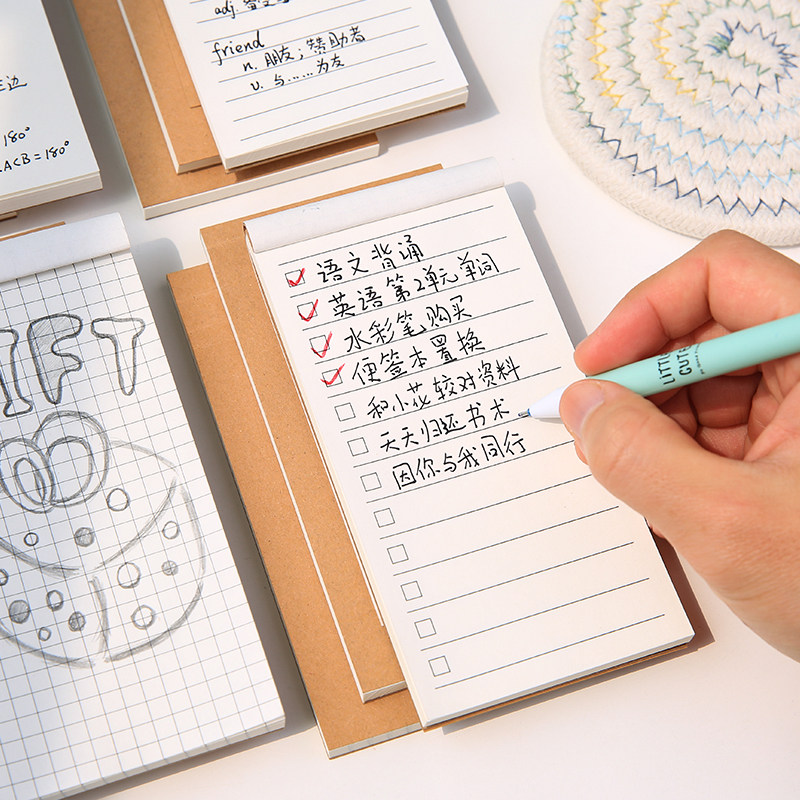 friend
n. 朋友；赞助者
v. 与……为友
180°
ACB = 180°
语文背诵
英语第2单元单词
水彩笔购买
便签本置换
和小花较对资料
天天归还书术
因你与我同行
IFT
LITTLE
CUTE